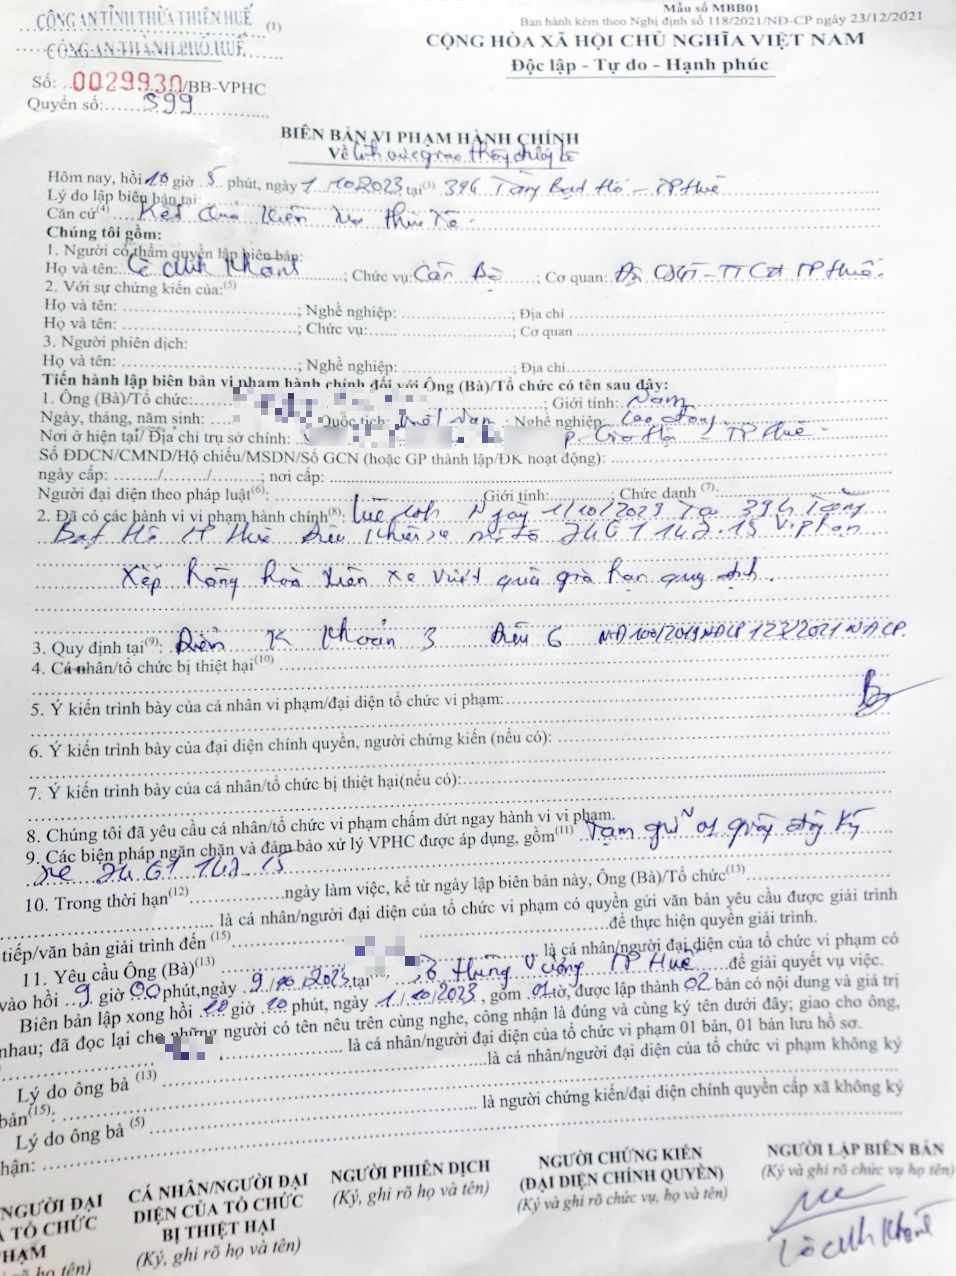 CÔNG AN TỈNH THỪA THIÊN HUẾ (1)
CÔNG AN THÀNH PHỐ HUẾ
Số: 0029930/BB-VPHC
Quyển số: 599
Mẫu số MBB01
Ban hành kèm theo Nghị định số 118/2021/NĐ-CP ngày 23/12/2021
CỘNG HÒA XÃ HỘI CHỦ NGHĨA VIỆT NAM
Độc lập - Tự do - Hạnh phúc
BIÊN BẢN VI PHẠM HÀNH CHÍNH
Về lĩnh vực giao thông đường bộ
Hôm nay, hồi 10 giờ 5 phút, ngày 1/10/2023 tại(3) 394 Tăng Bạt Hổ - TP Huế
Lý do lập biên bản tại:
Căn cứ(4) Kết quả kiểm tra thực tế
Chúng tôi gồm:
1. Người có thẩm quyền lập biên bản:
Họ và tên: Khánh; Chức vụ: Cán Bộ; Cơ quan: Đội CSGT-TT CA TP Huế.
2. Với sự chứng kiến của:(5)
Họ và tên: ; Nghề nghiệp: ; Địa chỉ
Họ và tên: ; Chức vụ: ; Cơ quan
3. Người phiên dịch:
Họ và tên: ; Nghề nghiệp: ; Địa chỉ
Tiến hành lập biên bản vi phạm hành chính đối với Ông (Bà)/Tổ chức có tên sau đây:
1. Ông (Bà)/Tổ chức: ; Giới tính: Nam
Ngày, tháng, năm sinh: Quốc tịch: Việt Nam Nghề nghiệp: Lao động
Nơi ở hiện tại/ Địa chỉ trụ sở chính: P. - TP Huế
Số ĐDCN/CMND/Hộ chiếu/MSDN/Số GCN (hoặc GP thành lập/ĐK hoạt động):
ngày cấp: / / ; nơi cấp:
Người đại diện theo pháp luật(6): Giới tính: ; Chức danh (7):
2. Đã có các hành vi vi phạm hành chính(8): Lúc 10h Ngày 1/10/2023 Tại 394 Tăng
Bạt Hổ TP Huế Điều khiển xe mô tô 74G1 147.15 vi phạm
Xếp hàng hoá trên xe vượt quá giới hạn quy định.
3. Quy định tại(9): Điểm K Khoản 3 Điều 6 NĐ 100/2019 NĐCP 123/2021 NĐCP.
4. Cá nhân/tổ chức bị thiệt hại(10)
5. Ý kiến trình bày của cá nhân vi phạm/đại diện tổ chức vi phạm:
6. Ý kiến trình bày của đại diện chính quyền, người chứng kiến (nếu có):
7. Ý kiến trình bày của cá nhân/tổ chức bị thiệt hại(nếu có):
8. Chúng tôi đã yêu cầu cá nhân/tổ chức vi phạm chấm dứt ngay hành vi vi phạm.
9. Các biện pháp ngăn chặn và đảm bảo xử lý VPHC được áp dụng, gồm(11) Tạm giữ 01 giấy đăng ký
xe 74G1 147 15
10. Trong thời hạn(12) ngày làm việc, kể từ ngày lập biên bản này, Ông (Bà)/Tổ chức(13)
là cá nhân/người đại diện của tổ chức vi phạm có quyền gửi văn bản yêu cầu được giải trình
tiếp/văn bản giải trình đến (15) để thực hiện quyền giải trình.
11. Yêu cầu Ông (Bà)(13) là cá nhân/người đại diện của tổ chức vi phạm có
vào hồi 9 giờ 00 phút, ngày 9/10/2023, tại Hùng Vương TP Huế để giải quyết vụ việc.
Biên bản lập xong hồi 10 giờ 10 phút, ngày 1/10/2023, gồm 01 tờ, được lập thành 02 bản có nội dung và giá trị
nhau; đã đọc lại cho những người có tên nêu trên cùng nghe, công nhận là đúng và cùng ký tên dưới đây; giao cho ông,
là cá nhân/người đại diện của tổ chức vi phạm 01 bản, 01 bản lưu hồ sơ.
Lý do ông bà (13) là cá nhân/người đại diện của tổ chức vi phạm không ký
bản(15):
Lý do ông bà (5) là người chứng kiến/đại diện chính quyền cấp xã không ký
nhận:
NGƯỜI ĐẠI
TỔ CHỨC
PHẠM
họ tên)
CÁ NHÂN/NGƯỜI ĐẠI
DIỆN CỦA TỔ CHỨC
BỊ THIỆT HẠI
(Ký, ghi rõ họ và tên)
NGƯỜI PHIÊN DỊCH
(Ký, ghi rõ họ và tên)
NGƯỜI CHỨNG KIẾN
(ĐẠI DIỆN CHÍNH QUYỀN)
(Ký và ghi rõ chức vụ, họ và tên)
NGƯỜI LẬP BIÊN BẢN
(Ký và ghi rõ chức vụ họ tên)
Khánh